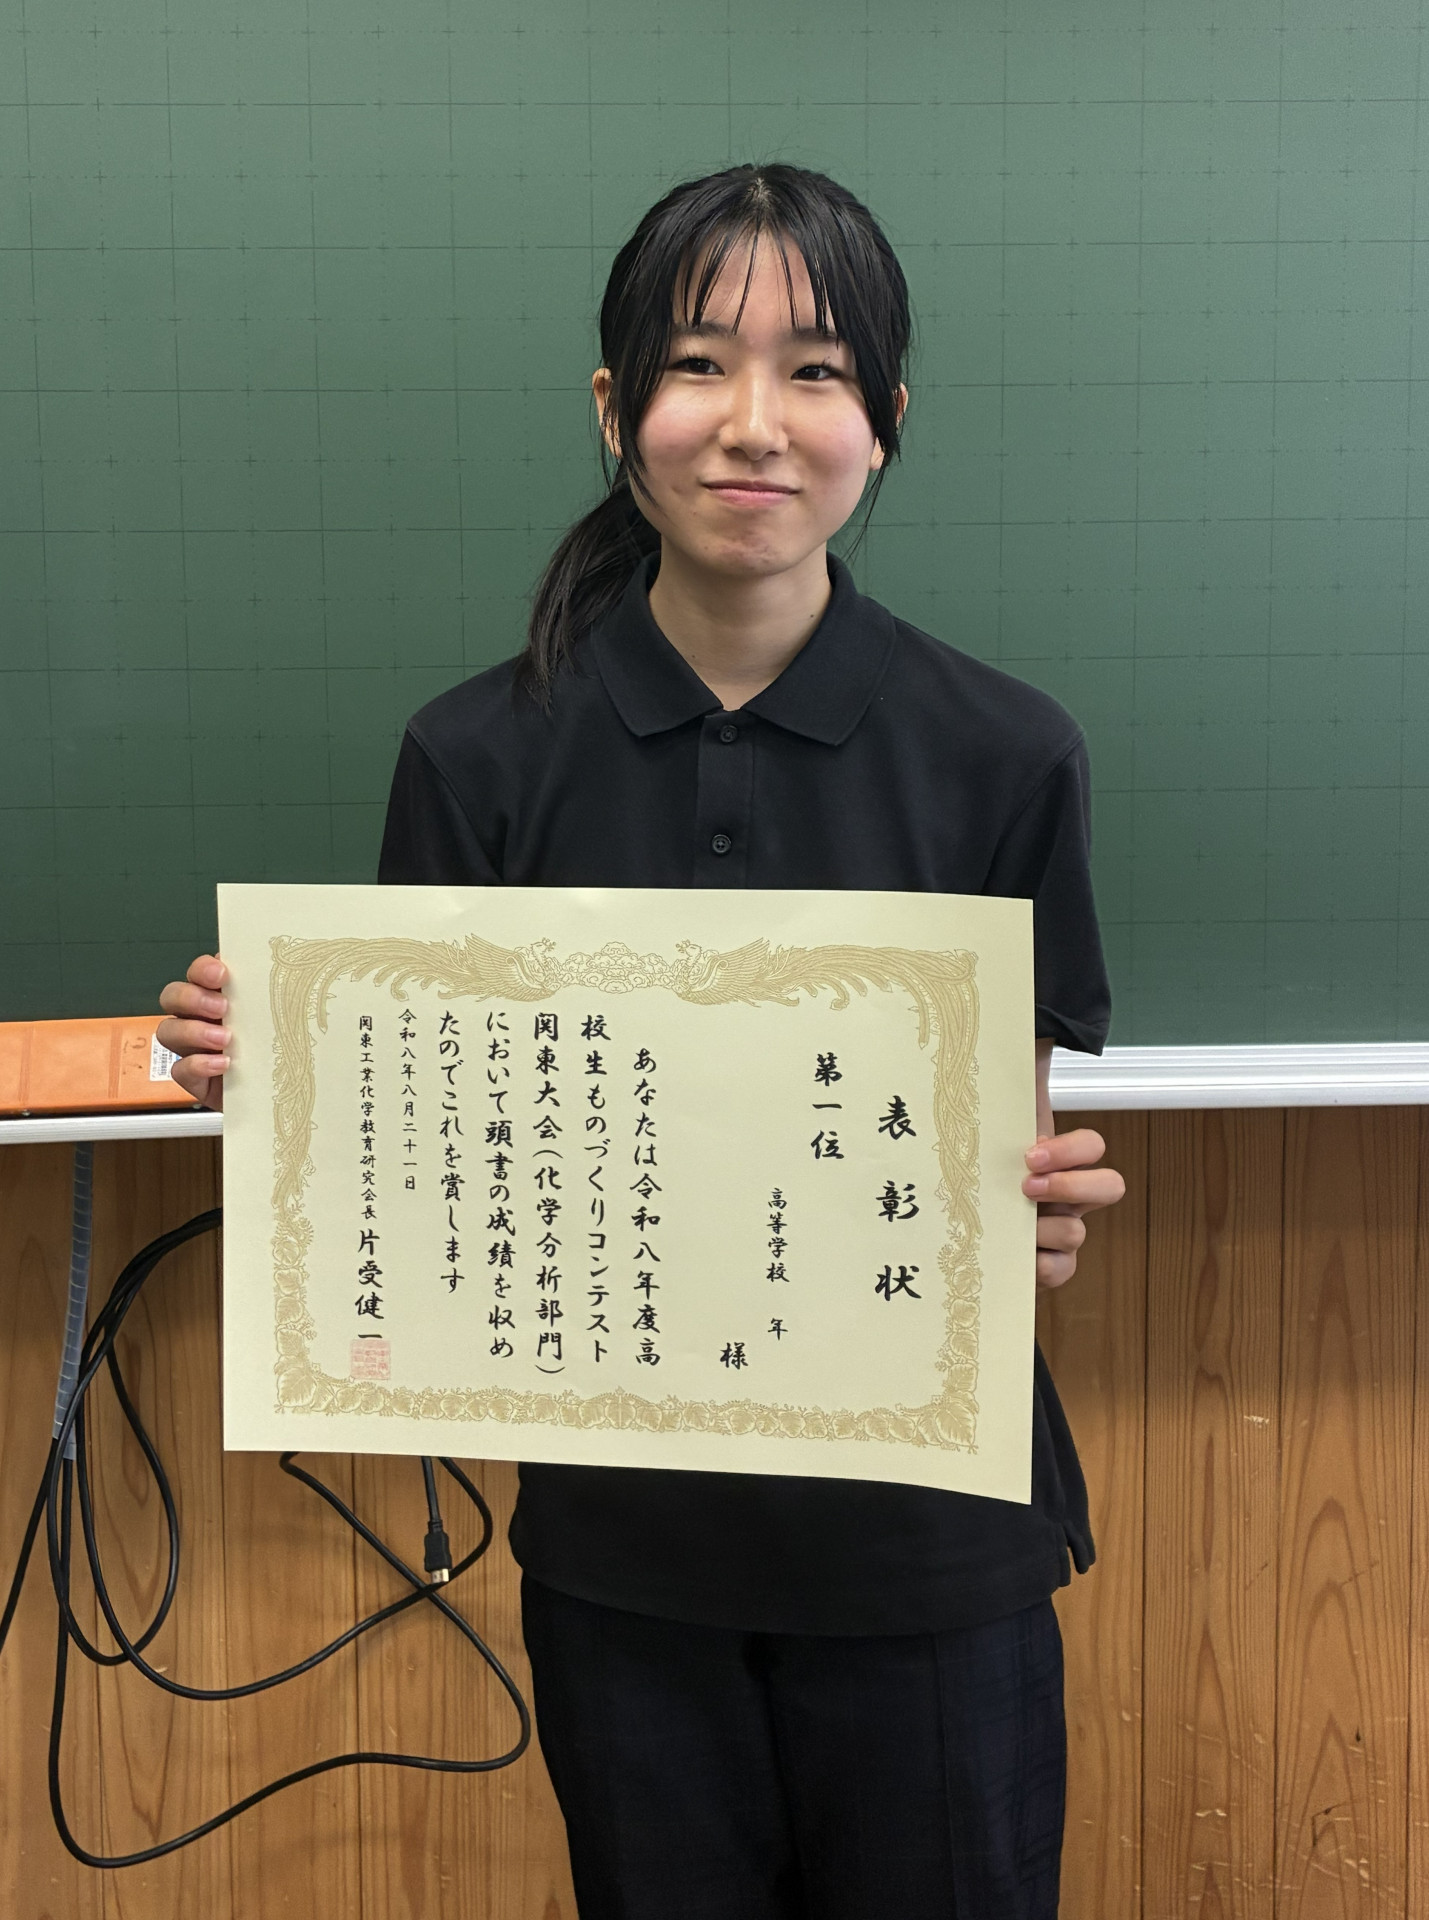 表彰状
第一位
高等学校 年
様
あなたは令和八年度高
校生ものづくりコンテスト
関東大会(化学分析部門)
において頭書の成績を収め
たのでこれを賞します
令和八年八月二十一日
関東工業化学教育研究会長 片受健一